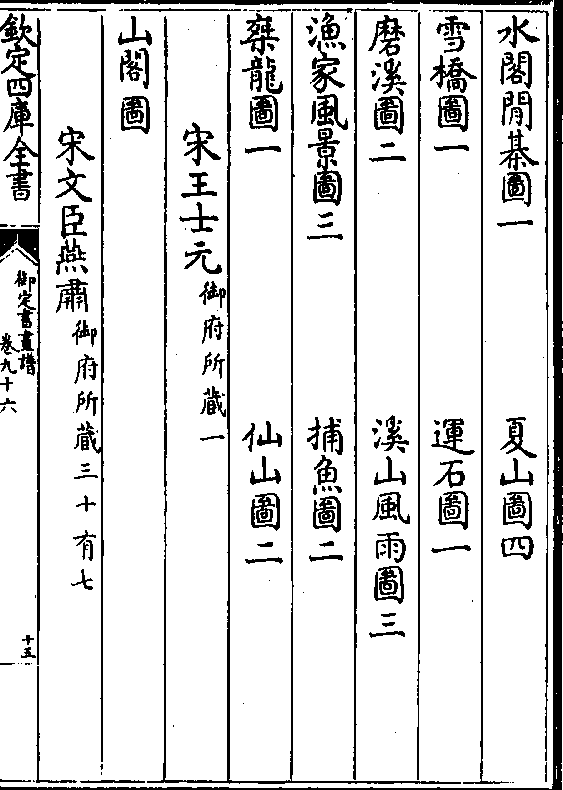 水閣閒棊圖一　夏山圖四
雪橋圖一　運石圖一
磨溪圖二　溪山風雨圖三
漁家風景圖三　捕魚圖二
槃龍圖一　仙山圖二
宋王士元御府所藏一
山閣圖
宋文臣燕肅御府所藏三十有七
欽定四庫全書
御定書畫譜
卷九十六
十五